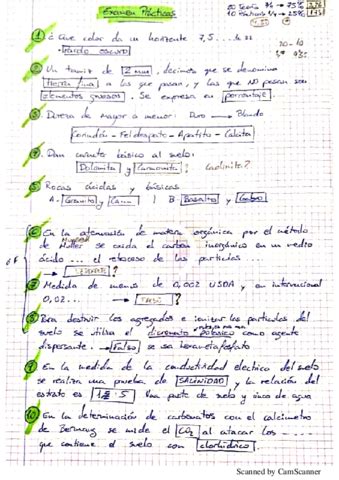 Examen Prácticas
20 Teoría 3/4 → 75%
10 Prácticas 1/4 → 25%
1 ¿Que color da un horizonte 7,5...
→ Pardo oscuro
2 Un tamiz de 2 mm, decimos que se denomina
Tierra fina a los que pasan, y los que NO pasan son
elementos gruesos. Se expresa en porcentaje.
3 Dureza de Mayor a menor: Duro → Blando
Corindón - Feldespato - Apatito - Calcita
4 Dan carácter básico al suelo:
Dolomita y ? Caolinita?
5 Rocas ácidas y básicas
A- Granito y | B Basalto y Gabro
6 En la de materia orgánica por el método
de se oxida el carbono inorgánico en un medio
ácido ... el retroceso de las partículas ...
→ ?
7 Medida de menos de 0,002 USDA y en internacional
0,02... → ?
8 Para destruir los agregados e ionizar las partículas del
suelo se utiliza el dicromato potásico como agente
dispersante. → Falso se usa hexametafosfato
9 En la medida de la conductividad eléctrica del suelo
se realiza una prueba de SALINIDAD y la relación del
extracto es 1:5 Una parte de suelo y cinco de agua
10 En la determinación de carbonatos con el calcímetro
de Bernard se mide el CO2 al atacar los ...
que contiene el suelo con clorhídrico.
Scanned by CamScanner